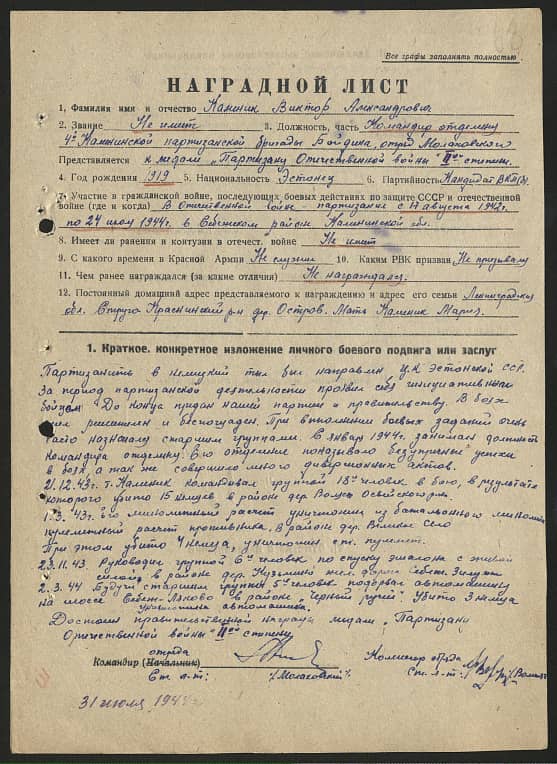 Все графы заполнять полностью
НАГРАДНОЙ ЛИСТ
1. Фамилия имя и отчество Каменик Виктор Александрович
2. Звание Не имеет 3. Должность, часть Командир отделения
4ой Калининской партизанской бригады Бойдина, отряд Молаковского
Представляется к медали "Партизану Отечественной войны" IIой степени.
4. Год рождения 1919 5. Национальность Эстонец 6. Партийность Кандидат ВКП(б)
7. Участие в гражданской войне, последующих боевых действиях по защите СССР и отечественной
войне (где и когда) В Отечественной войне - партизание с августа 1942г.
по 24 июля 1944г. в Себежском районе Калининской обл.
8. Имеет ли ранения и контузии в отечест. войне Не имеет
9. С какого времени в Красной Армии Не служил 10. Каким РВК призван Не призывался
11. Чем ранее награждался (за какие отличия) Не награждался.
12. Постоянный домашний адрес представляемого к награждению и адрес его семьи Ленинградская
обл. Струго Краснинский р-н дер. Остров. Мать Каменик Мария.
1. Краткое, конкретное изложение личного боевого подвига или заслуг
Партизанить в немецкий тыл был направлен ЦК Эстонской ССР.
За период партизанской деятельности проявил себя инициативным
бойцом. До конца предан нашей партии и правительству. В боях
был решителен и беспощаден. При выполнении боевых заданий очень
часто назначался старшим группами. С января 1944г. занимал должность
командира отделения. Его отделение показывало безупречные успехи
в боях, а так же совершило много диверсионных актов.
21.12.43г. т. Каменик командовал группой 18 человек в бою, в результате
которого убито 15 немцев в районе дер. Освейского р-на.
1.3.43г. его минометный расчет уничтожил из батальонного миномета
пулеметный расчет противника. В районе дер. Великое Село
При этом убито 4 немца, уничтожен ст. пулемет.
23.11.43. Руководил группой 6 человек по спуску эшалона с живой
силой в районе дер. Кузьмино жел. дорога Себеж-Зилупе
2.3.44 Будучи старшим группы 5 человек подорвал автомашину
на шоссе Себеж- в районе "Черный ручей". Убито 3 немца
уничтожена автомашина.
Достоин правительственной награды медали "Партизану
Отечественной войны" IIой степени.
отряда
Командир (Начальник)
Ст. л-т: /Молаковский/
Комиссар отряда
Ст. л-т:
31 июля 1944г